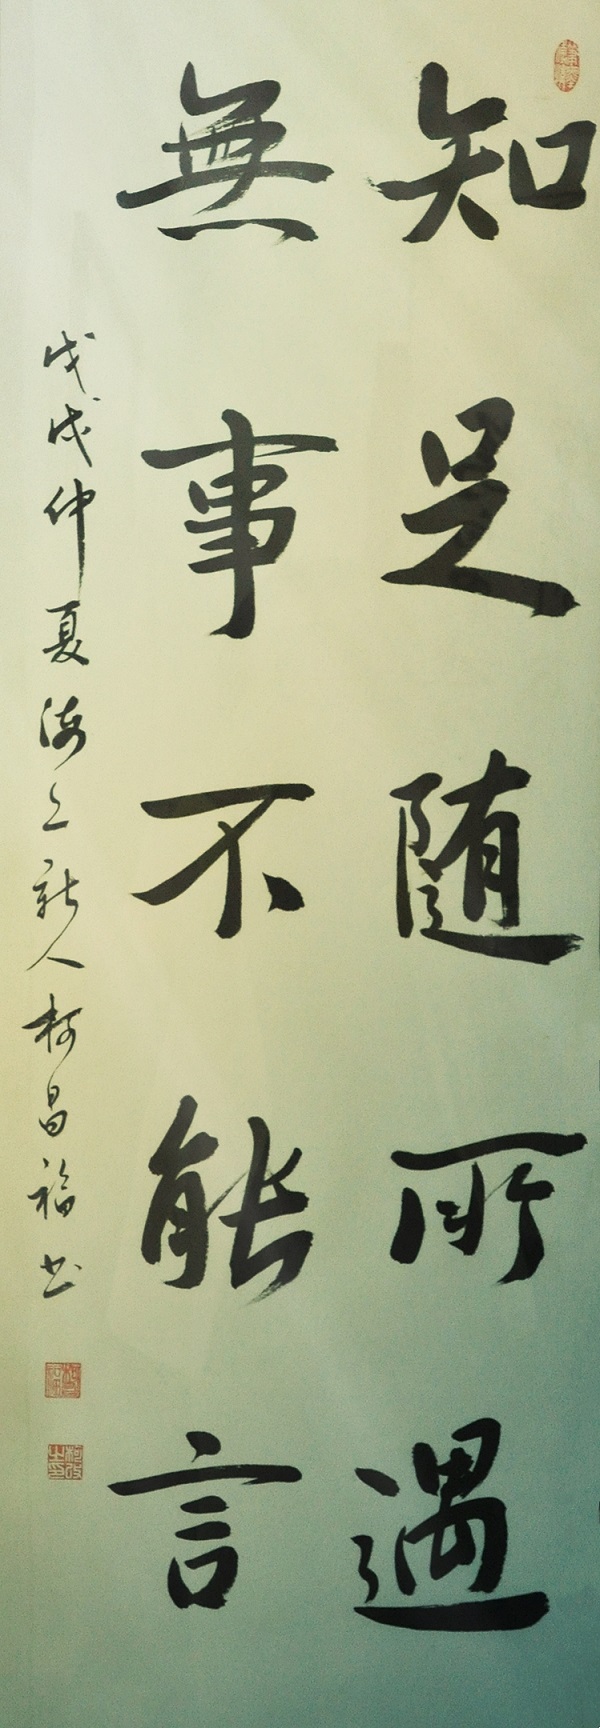 知足随所遇
無事不能言
戊戌仲夏海上新人柯昌福书